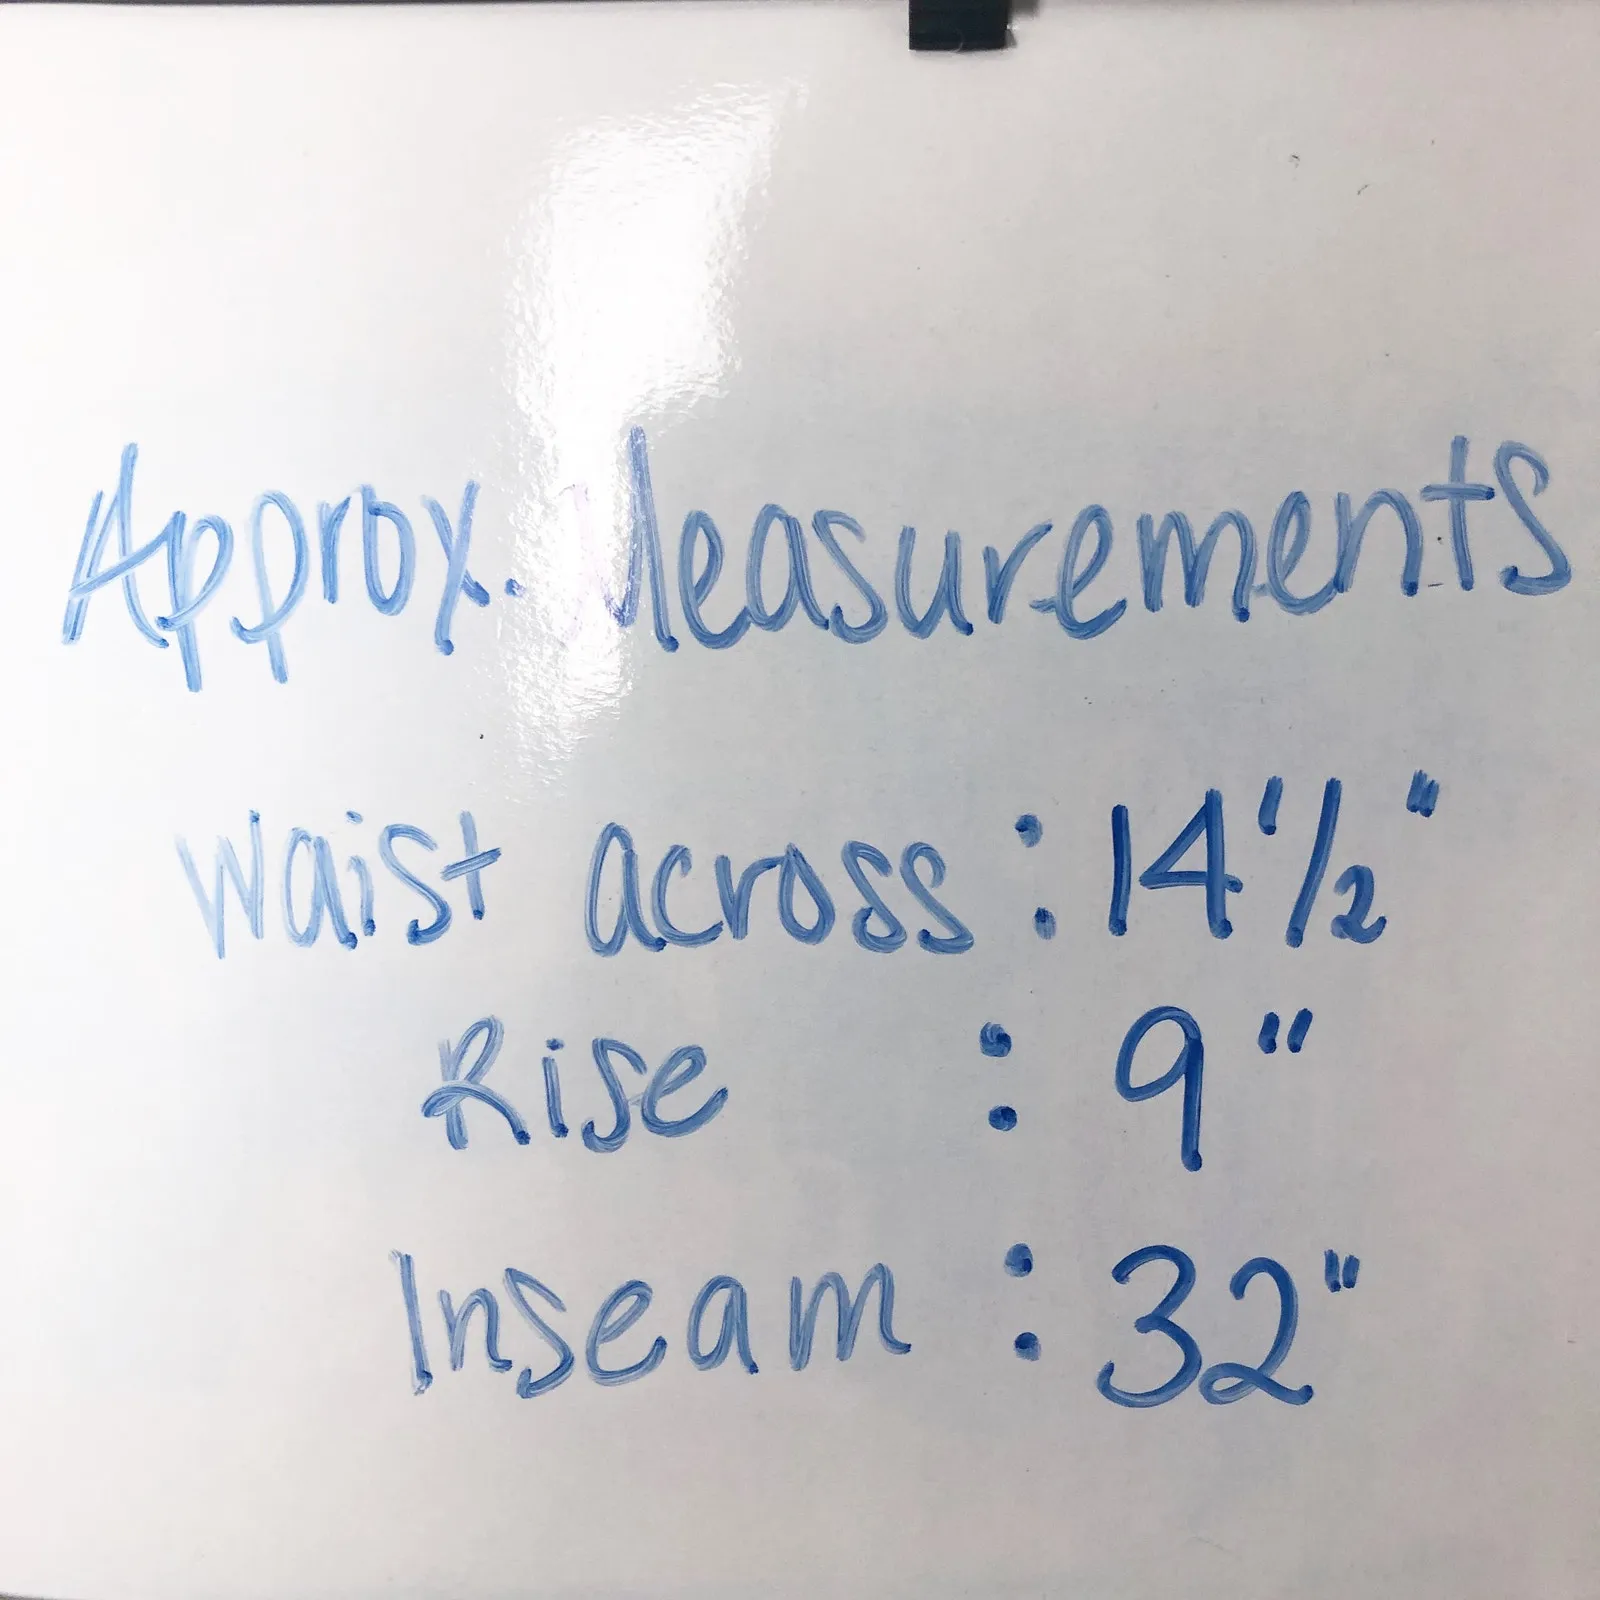 Approx. Measurements
Waist across : 14 1/2"
Rise : 9"
Inseam : 32"